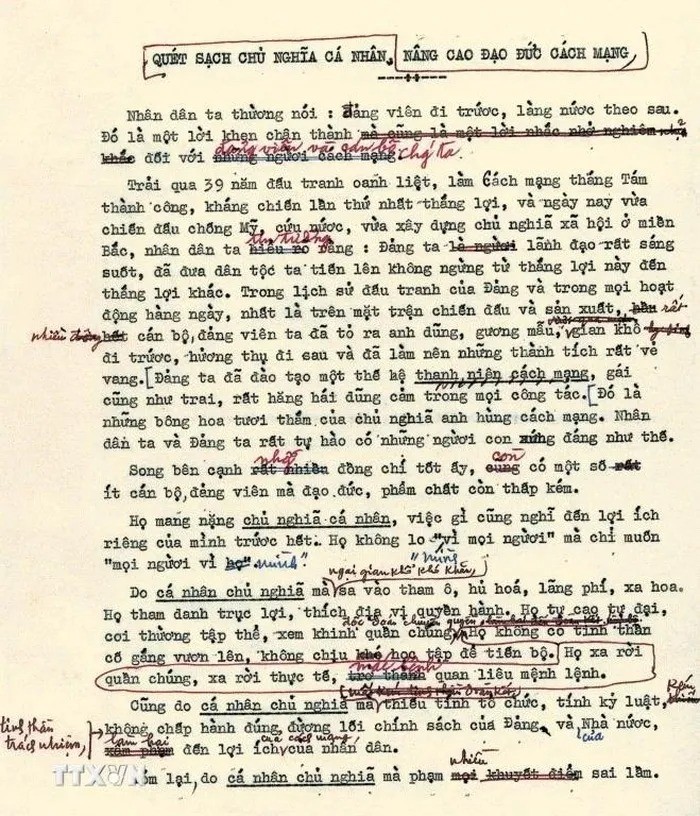 QUÉT SẠCH CHỦ NGHĨA CÁ NHÂN, NÂNG CAO ĐẠO ĐỨC CÁCH MẠNG
Nhân dân ta thường nói : đảng viên đi trước, làng nước theo sau.
Đó là một lời khen chân thành mà cũng là một lời nhắc nhở nghiêm
đảng viên và cán bộ chúng ta.
khắc đối với những người cách mạng
Trải qua 39 năm đấu tranh oanh liệt, làm Cách mạng tháng Tám
thành công, kháng chiến lần thứ nhất thắng lợi, và ngày nay vừa
chiến đấu chống Mỹ, cứu nước, vừa xây dựng chủ nghĩa xã hội ở miền
tin tưởng
Bắc, nhân dân ta hiểu rõ rằng : Đảng ta là người lãnh đạo rất sáng
suốt, đã đưa dân tộc ta tiến lên không ngừng từ thắng lợi này đến
thắng lợi khác. Trong lịch sử đấu tranh của Đảng và trong mọi hoạt
động hàng ngày, nhất là trên mặt trận chiến đấu và sản xuất, rất
nhiều đồng chí cán bộ, đảng viên ta đã tỏ ra anh dũng, gương mẫu, gian khổ
đi trước, hưởng thụ đi sau và đã làm nên những thành tích rất vẻ
vang. [Đảng ta đã đào tạo một thế hệ thanh niên cách mạng, gái
cũng như trai, rất hăng hái dũng cảm trong mọi công tác. [Đó là
những bông hoa tươi thắm của chủ nghĩa anh hùng cách mạng. Nhân
dân ta và Đảng ta rất tự hào có những người con xứng đáng như thế.
những còn
Song bên cạnh rất nhiều đồng chí tốt ấy, cũng có một số rất
ít cán bộ, đảng viên mà đạo đức, phẩm chất còn thấp kém.
Họ mang nặng chủ nghĩa cá nhân, việc gì cũng nghĩ đến lợi ích
riêng của mình trước hết. Họ không lo "vì mọi người" mà chỉ muốn
"mọi người vì họ" mình"
ngại gian khổ khó khăn,
Do cá nhân chủ nghĩa mà sa vào tham ô, hủ hoá, lãng phí, xa hoa.
Họ tham danh trục lợi, thích địa vị quyền hành. Họ tự cao tự đại,
độc đoán chuyên quyền,
coi thường tập thể, xem khinh quần chúng, Họ không có tinh thần
cố gắng vươn lên, không chịu khó học tập để tiến bộ. Họ xa rời
mắc bệnh
quần chúng, xa rời thực tế, trở thành quan liêu mệnh lệnh.
mất đoàn kết,
Cũng do cá nhân chủ nghĩa mà thiếu tính tổ chức, tính kỷ luật, kém
tinh thần trách nhiệm, không chấp hành đúng đường lối chính sách của Đảng và của Nhà nước,
làm hại xâm phạm đến lợi ích của cách mạng, của nhân dân.
nhiều
Tóm lại, do cá nhân chủ nghĩa mà phạm mọi khuyết điểm sai lầm.
TTXVN